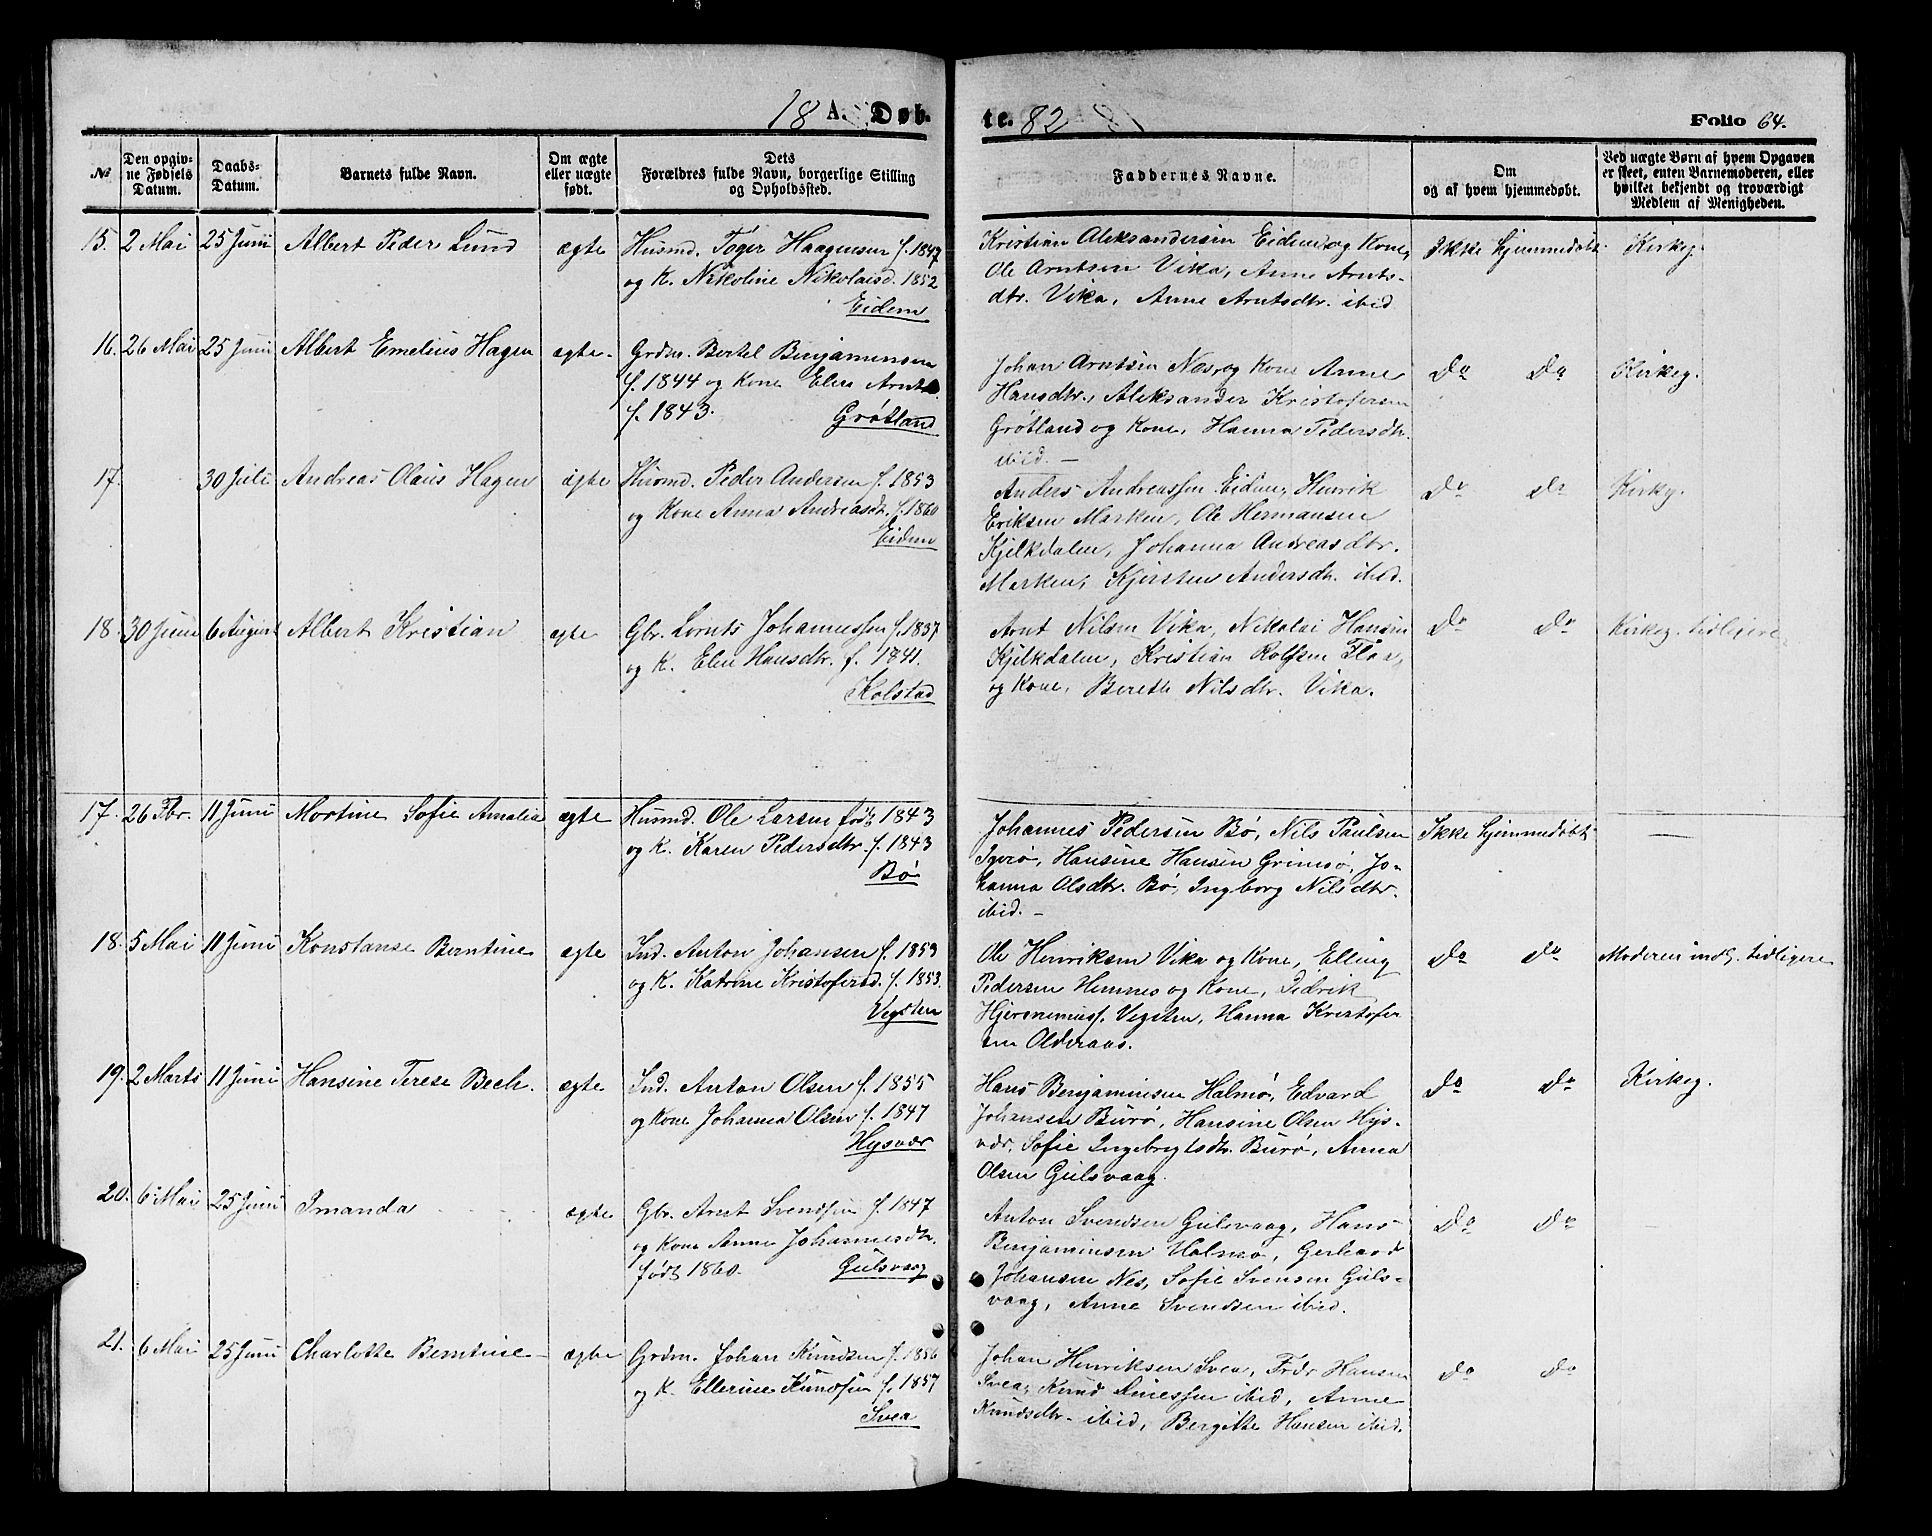 18 A. Døb-
te. 82
Folio 64.
№
Den opgiv-
ne Fødsels
Datum.
Daabs-
Datum.
Barnets fulde Navn.
Om ægte
eller uægte
født.
Dets
Forældres fulde Navn, borgerlige Stilling
og Opholdssted.
Faddernes Navne.
Om
og af hvem hjemmedøbt.
Ved uægte Børn af hvem Opgaven
er skeet, enten Barnemoderen, eller
hvilket bekjendt og troværdigt
Medlem af Menigheden.
15. 2 Mai 25 Juni Albert Peder Lund ægte
Husmd. Toger Haagensen f. 1847
og K. Nikoline Nikolaisd. 1852
Eidem
Kristian Aleksandersen Eidem og Kone,
Ole Arntsen Vika, Anne Arnts-
dtr. Vika, Anne Arntsdtr. ibid
Ikke hjemmedøbt Kirkeg.
16. 26 Mai 25 Juni Albert Emelius Hagen ægte.
Grdm. Bertel Benjaminsen
f. 1844 og Kone Elen Arntsd.
f. 1843. Grøtland
Johan Arntsen Nes og Kone Anne
Hansdtr., Aleksander Kristofersen
Grøtland og Kone, Hanna Pedersdtr.
ibid. —
Do Do Kirkeg.
17. 30 Juli Andreas Olaus Hagen ægte
Husmd. Peder Andersen f. 1853
og Kone Anna Andreasdt. f. 1860
Eidem
Anders Andreassen Eidem, Henrik
Eriksen Marken, Ole Hermansen
Kjelkdalen, Johanna Andreasdtr.
Marken, Kjersten Andersdtr. ibid.
Do Do Kirkeg.
18. 30 Juni 6 August Albert Kristian ægte
Gbr. Lornts Johannessen f. 1837
og K. Elen Hansdtr. f. 1841.
Kolstad
Arnt Nilsen Vika, Nikolai Hansen
Kjelkdalen, Kristian Rolfsen Floa,
og Kone, Bereth Nilsdtr. Vika.
Do Do Kirkeg. tidligere
17. 26 Fbr. 11 Juni Martine Sofie Amalia ægte
Husmd. Ole Larsen født 1843
og K. Karen Pedersdtr. f. 1843
Bø
Johannes Pedersen Bø, Nils Paulsen
Igerø, Hansine Hansen Grimsø, Jo-
hanna Olsdtr. Bø, Ingborg Nilsdtr.
ibid. —
Ikke hjemmedøbt —
18. 5 Mai 11 Juni Konstanse Berntine ægte
Ind. Anton Johansen f. 1853
og K. Katrine Kristofersd. f. 1853.
Vegsten
Ole Henriksen Vika og Kone, Elling
Pedersen Hemnes og Kone, Didrik
Hjeronimuss. Vegsten, Hanna Kristofer
sen Olderaas.
Do Do Moderen indg. tidligere
19. 2 Marts 11 Juni Hansine Terese Bech. ægte
Ind. Anton Olsen f. 1855
og Kone Johanna Olsen f. 1847
Hysvær
Hans Benjaminsen Halmø, Edvard
Johansen Burø, Hansine Olsen Hys-
vær, Sofie Ingebrigtsdtr. Burø, Anna
Olsen Gulsvaag.
Do Do Kirkeg.
20. 6 Mai 25 Juni Imanda ægte
Gbr. Arnt Svendsen f. 1847
og Kone Anne Johannesdtr.
født 1860. Gulsvaag
Anton Svendsen Gulsvaag, Hans
Benjaminsen Halmø, Gerhard
Johansen Nes, Sofie Svensen Guls-
vaag, Anne Svendsen ibid.
Do Do
21. 6 Mai 25 Juni Charlotte Berntine ægte
Grdm. Johan Knudsen f. 1856
og K. Ellerine Knudsen f. 1857
Svea
Johan Henriksen Svea, Frdr Hansen
Svea, Knud ibid, Anne
Knudsdtr. ibid, Bergitte Hansen ibid.
Do Do